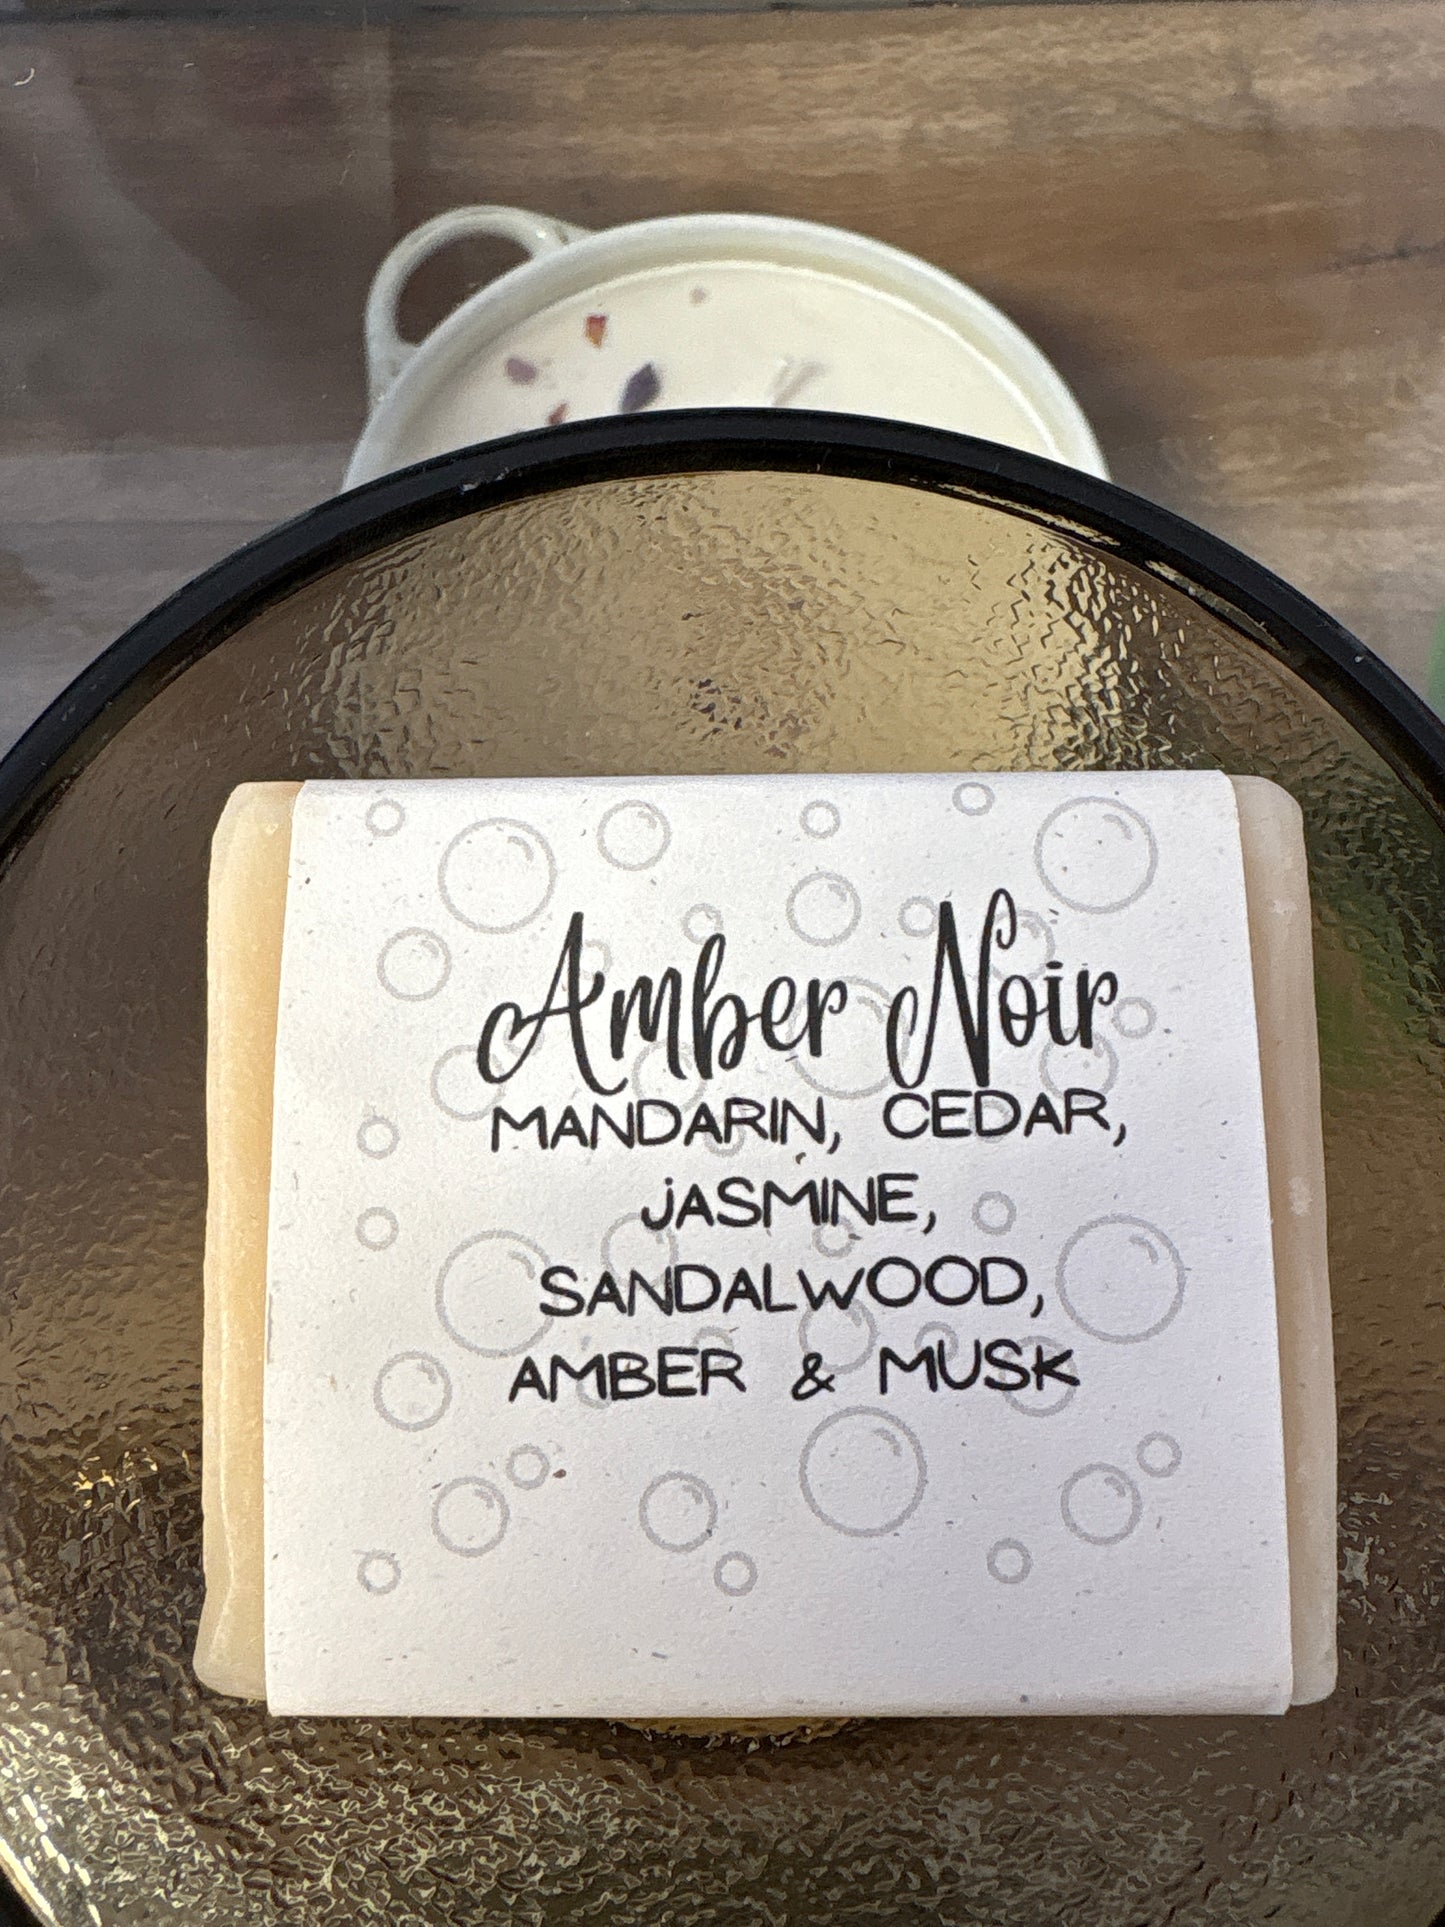 Amber Noir
MANDARIN, CEDAR,
jASMINE,
SANDALWOOD,
AMBER & MUSK